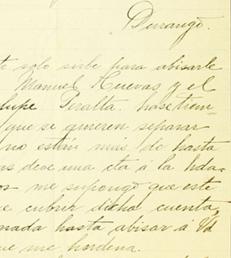 Durango.
te solo sirbe para abisarle
Manuel Cuevas y el
lupe Peralta. hase tiem
que se quieren separar
no están mas de hasta
deve una cta á la hda.
os me supongo que este
e cubrir dicha cuenta,
nada hasta abisar á Vd
que me hordena.